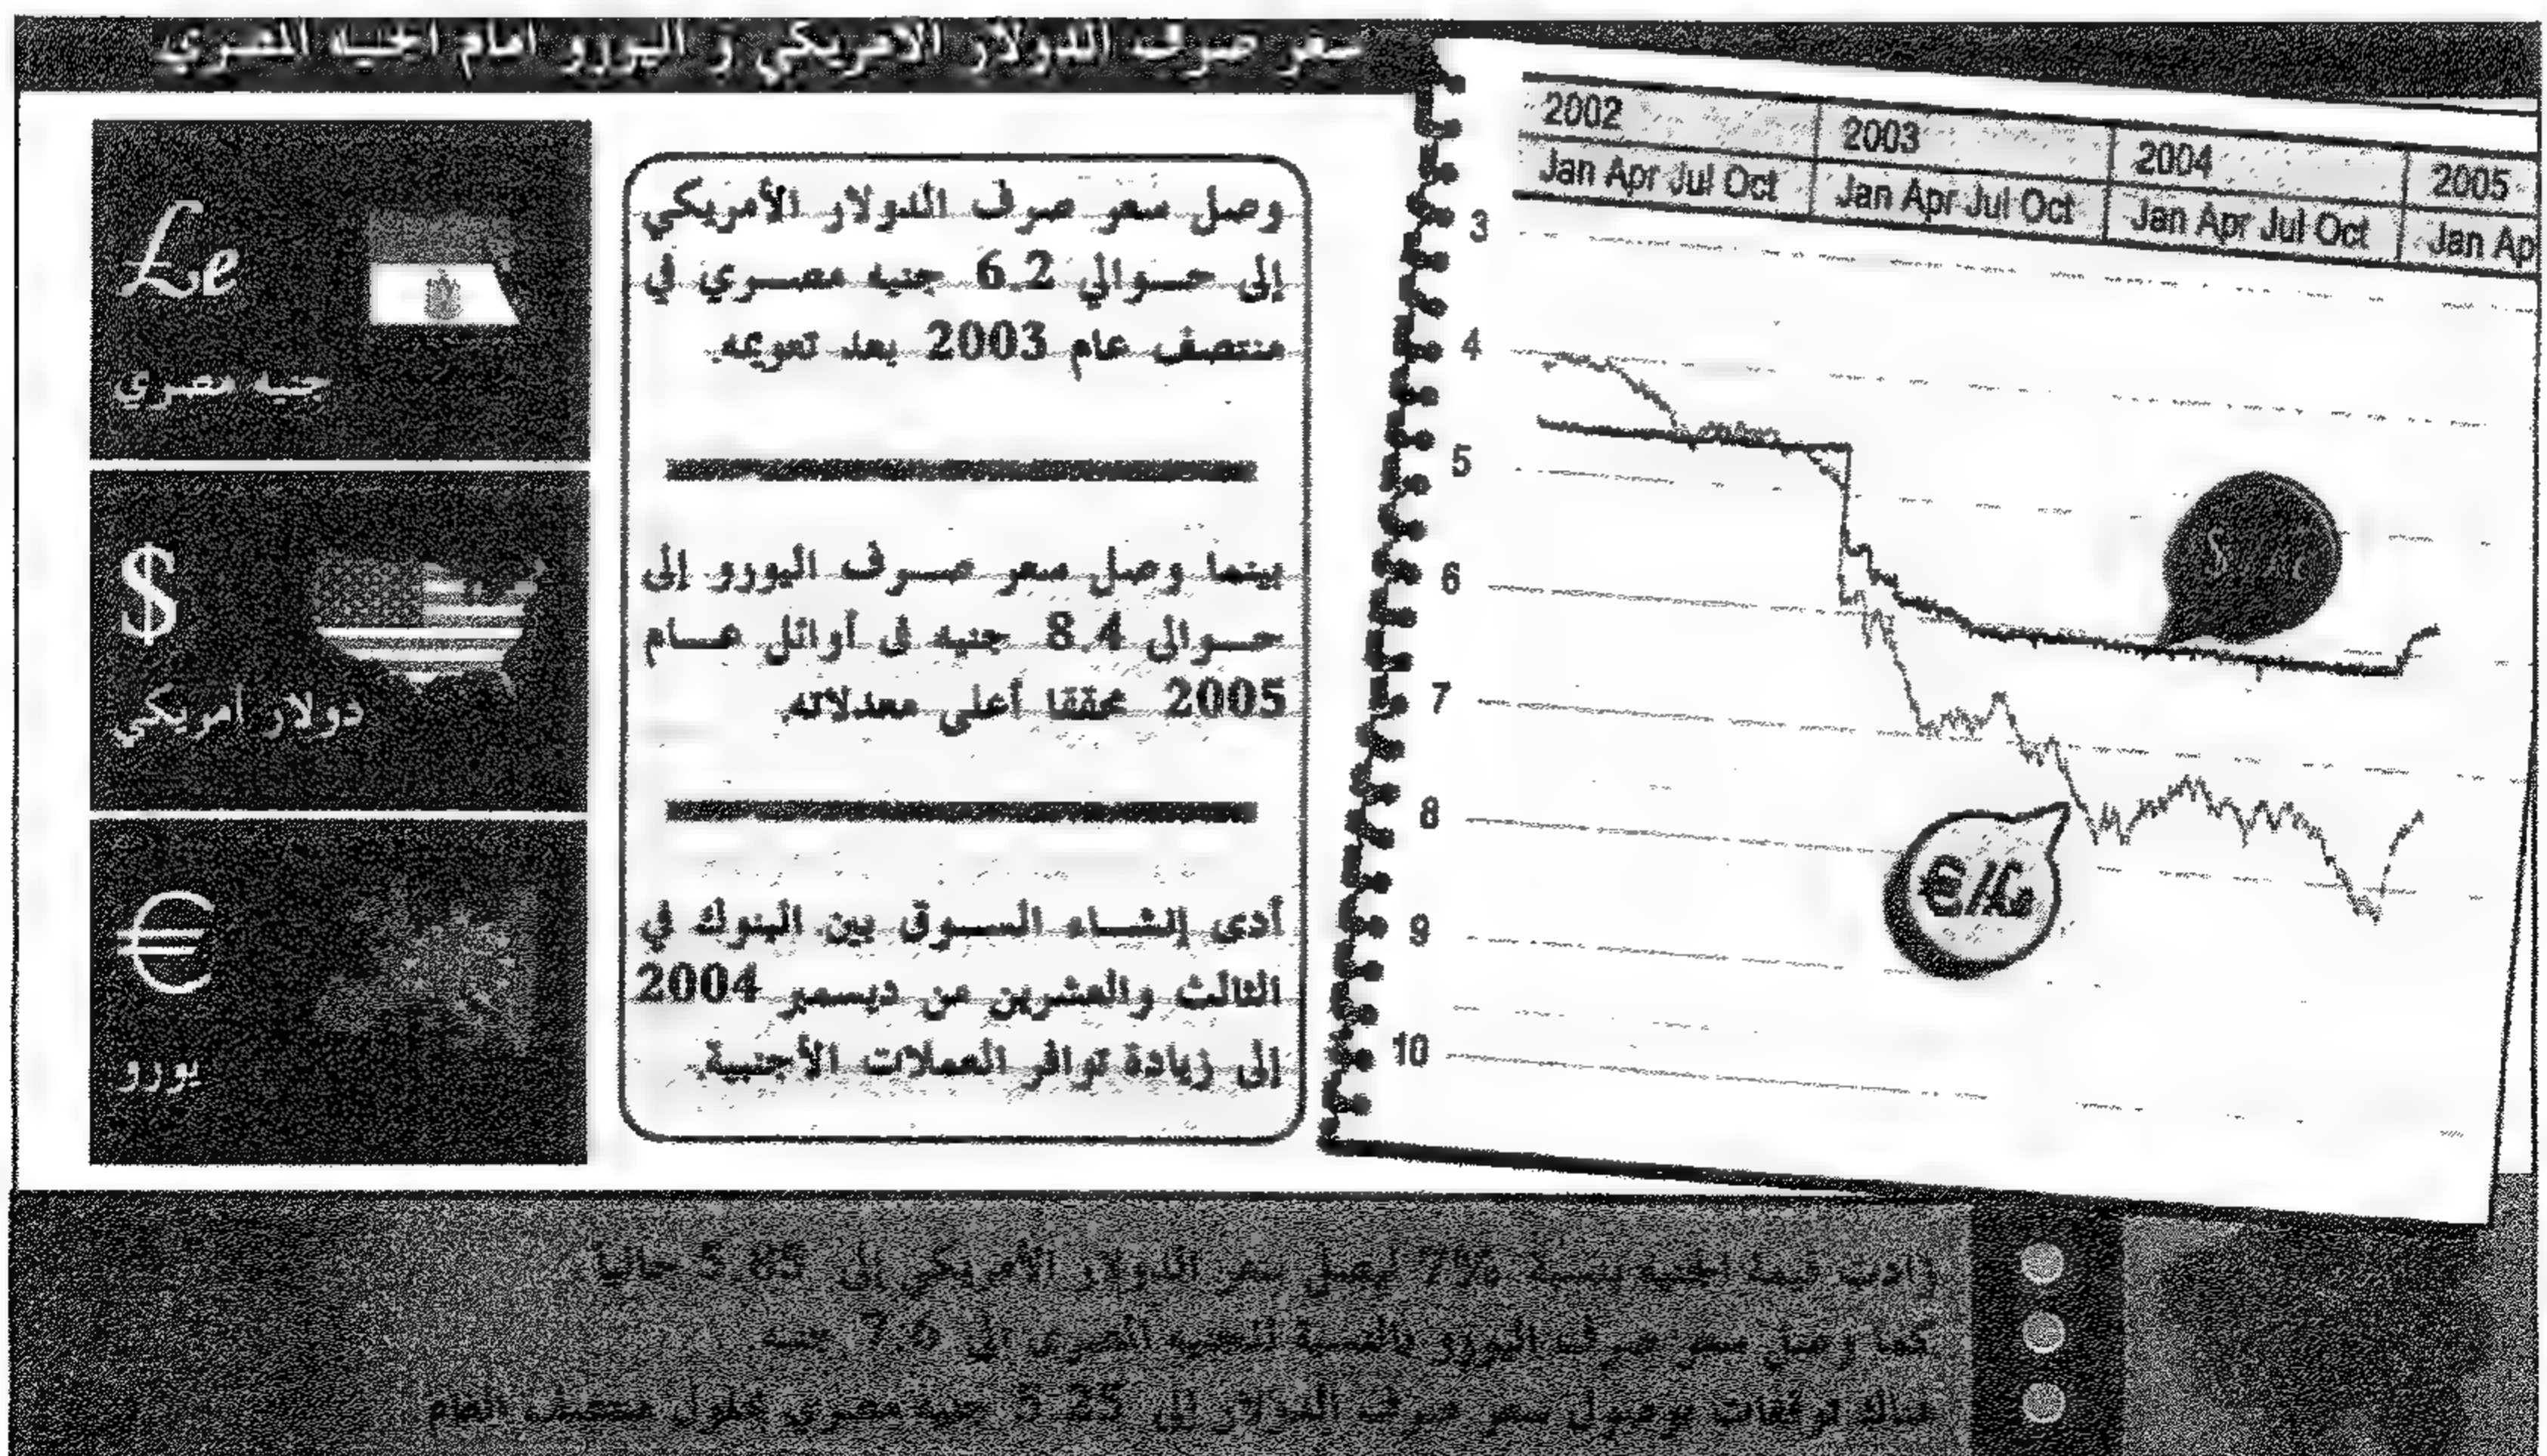 سعر صرف الدولار الامريكي و اليورو امام الجنيه المصري
Le
جنيه مصري
$
دولار أمريكي
€
يورو
وصل سعر صرف الدولار الأمريكي
إلى حــوالي 6.2 جنيه مصــري في
منتصف عام 2003 بعد تعويمه.
بينما وصل سعر صــرف اليورو إلى
حــوالى 8.4 جنيه فى أوائل عــام
2005 محققا أعلى معدلاته.
أدى إنشــاء الســوق بين البنوك في
الثالث والعشرين من ديسمبر 2004
إلى زيادة توافر العملات الأجنبية.
2002 2003 2004 2005
Jan Apr Jul Oct Jan Apr Jul Oct Jan Apr Jul Oct Jan Ap
3
4
5
6
7
8
9
10
€/Le
زادت قيمة الجنيه بنسبة 7% ليصل سعر الدولار الأمريكي إلى 5.85 حاليا.
كما وصل سعر صرف اليورو بالنسبة للجنيه المصرى إلى 7.6 جنيه.
هناك توقعات بوصول سعر صرف الدولار إلى 5.25 جنيه مصرى بحلول منتصف العام